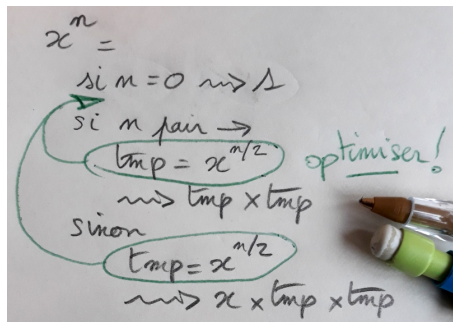 xⁿ =
si n = 0 ⇝ 1
si n pair →
tmp = x^(n/2)
optimiser!
⇝ tmp × tmp
sinon
tmp = x^(n/2)
⇝ x × tmp × tmp